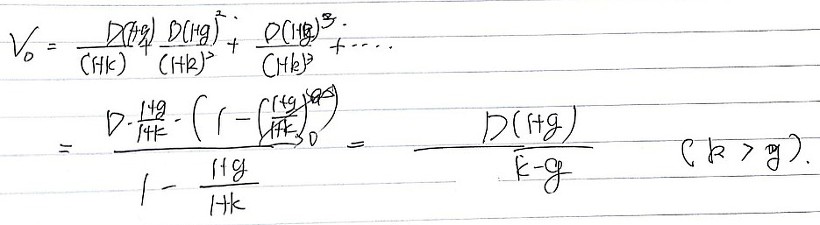 V₀ = D(1+g)/(1+k) + D(1+g)²/(1+k)² + D(1+g)³/(1+k)³ + ....
= D·(1+g)/(1+k)·(1 − ((1+g)/(1+k))^∞ → 0) / (1 − (1+g)/(1+k)) = D(1+g)/(k−g) (k > g).